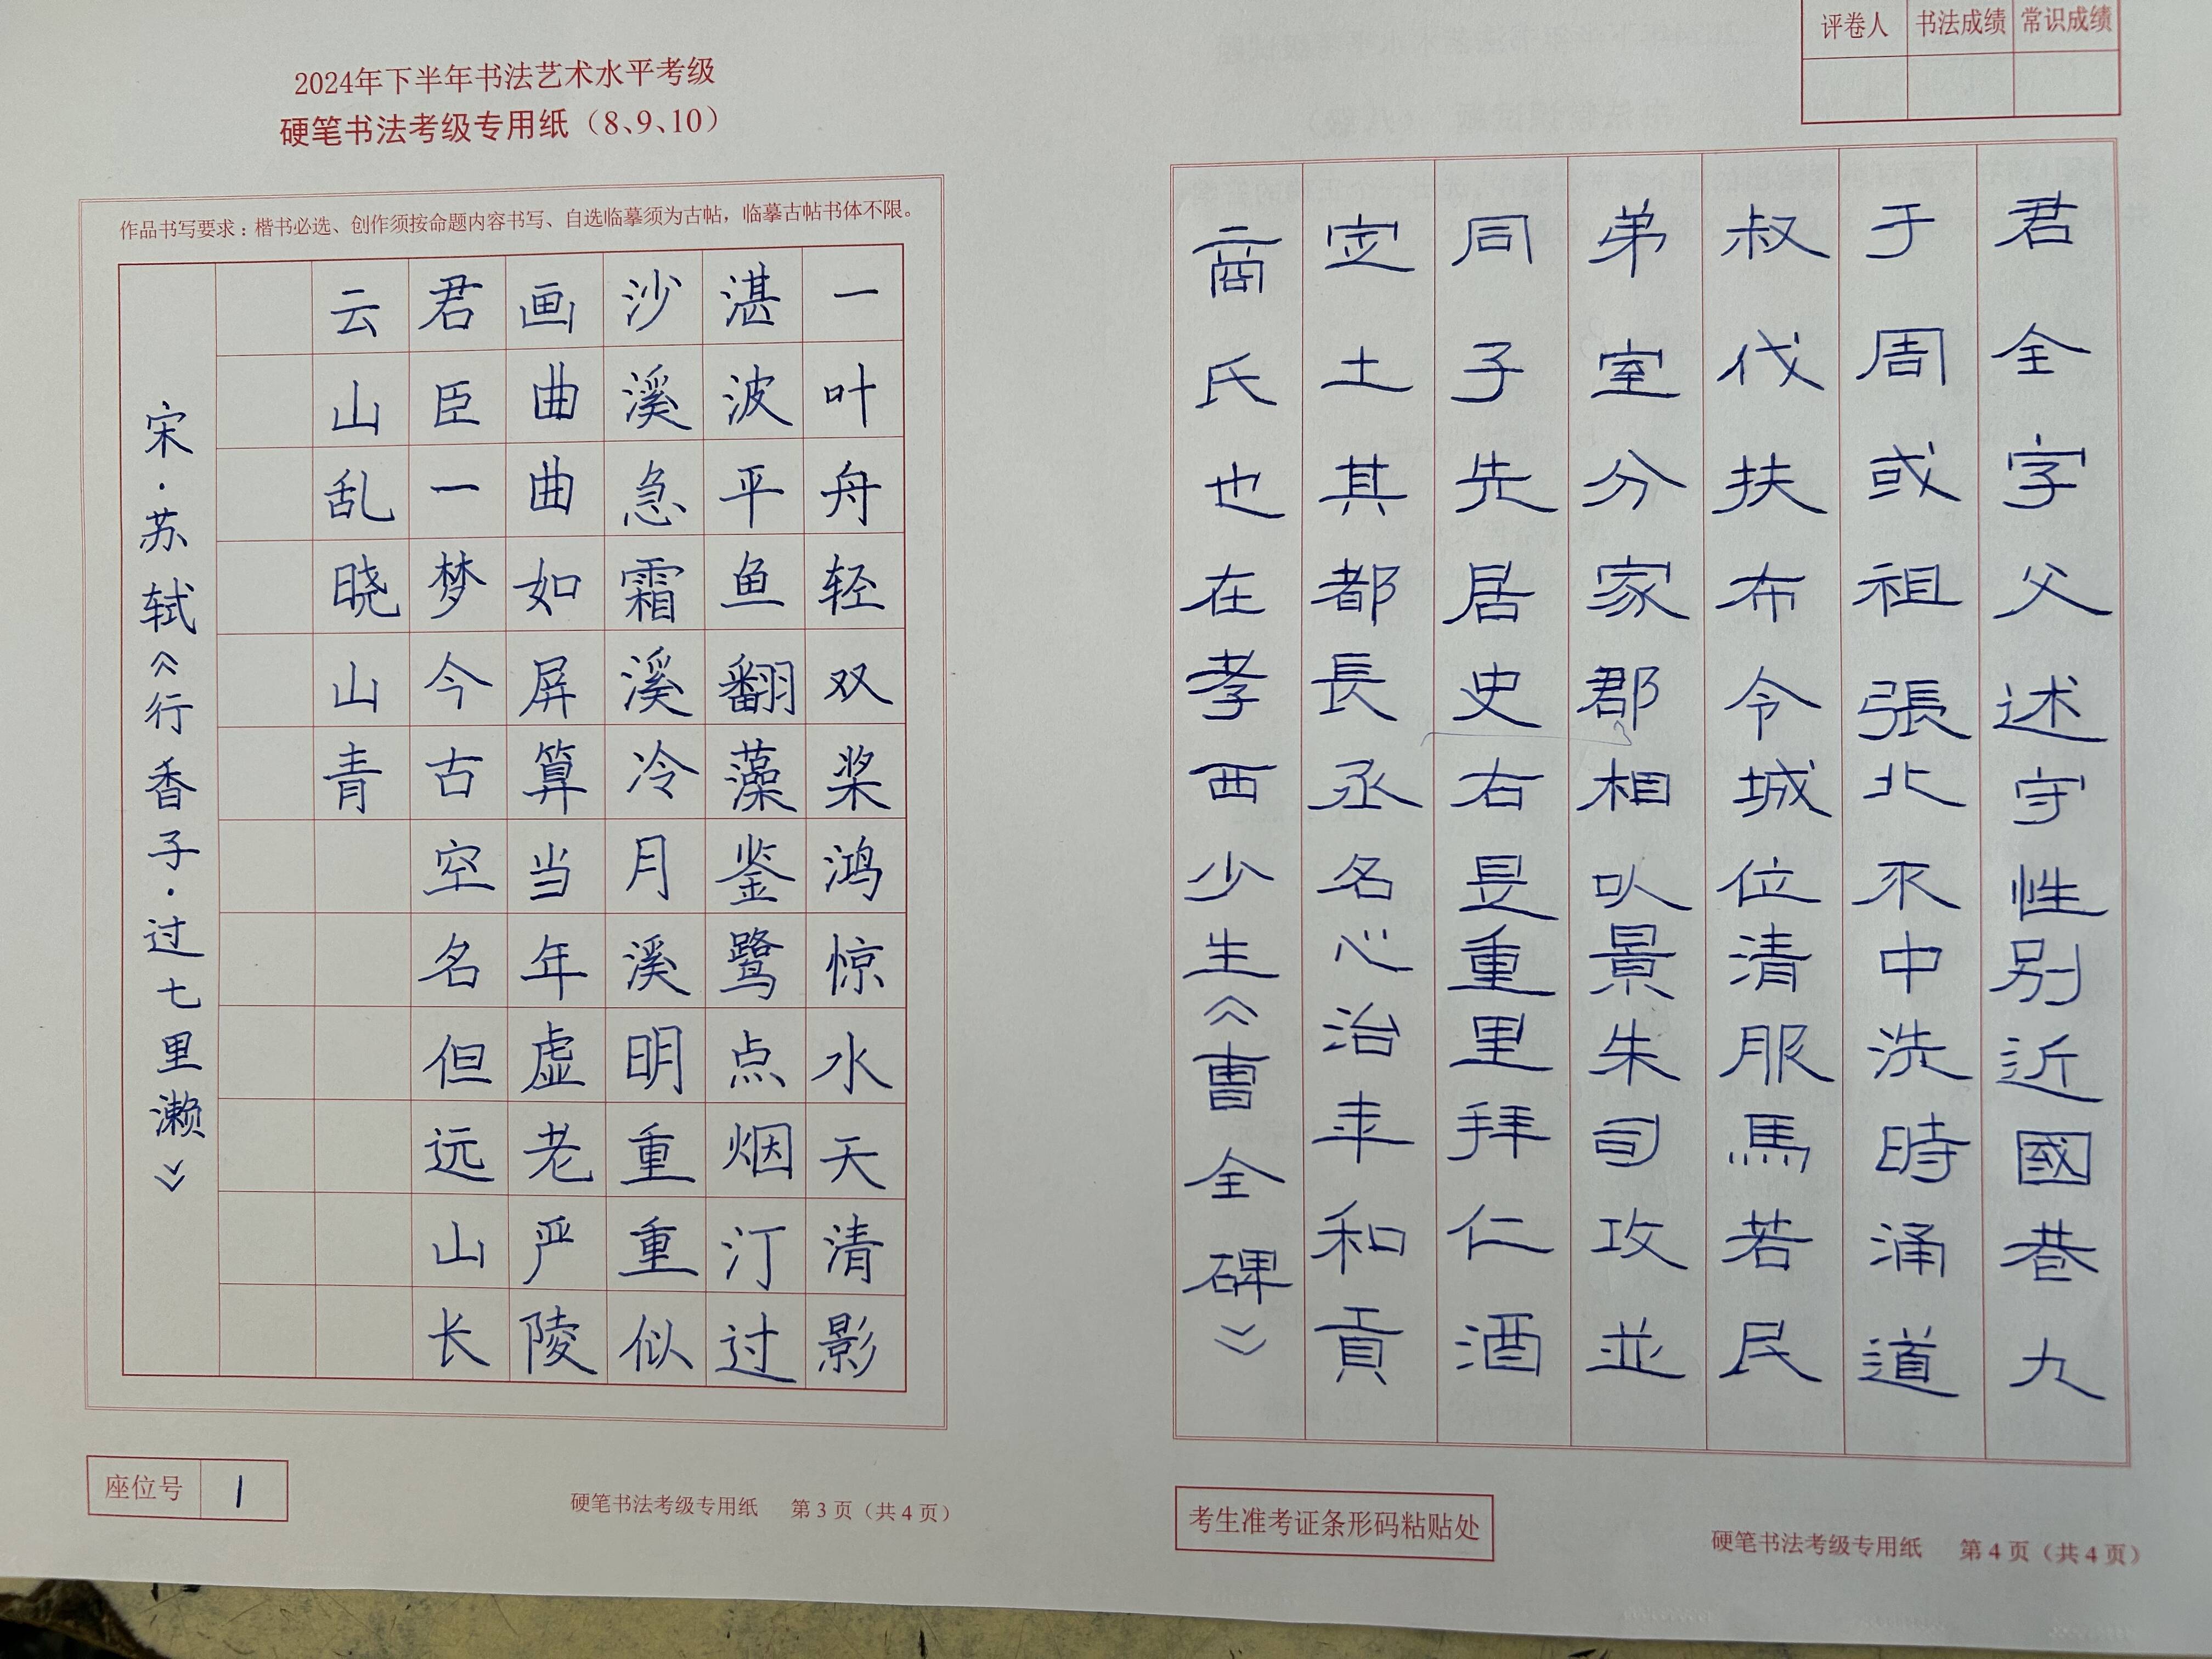 2024年下半年书法艺术水平考级
硬笔书法考级专用纸（8、9、10）
作品书写要求：楷书必选、创作须按命题内容书写、自选临摹须为古帖，临摹古帖书体不限。
一叶舟轻双桨鸿惊水天清影
湛波平鱼翻藻鉴鹭点烟汀过
沙溪急霜溪冷月溪明重重似
画曲曲如屏算当年虚老严陵
君臣一梦今古空名但远山长
云山乱晓山青
宋·苏轼《行香子·过七里濑》
座位号 1
硬笔书法考级专用纸 第3页（共4页）
评卷人 书法成绩 常识成绩
君全字父述守性别近國巷九
于周或祖張北不中洗時涌道
叔伐扶布令城位清服馬若民
弟室分家郡相以景朱司攻並
同子先居史右是重里拜仁酒
定土其都長丞名心治年和貢
商氏也在孝西少生《曹全碑》
考生准考证条形码粘贴处
硬笔书法考级专用纸 第4页（共4页）